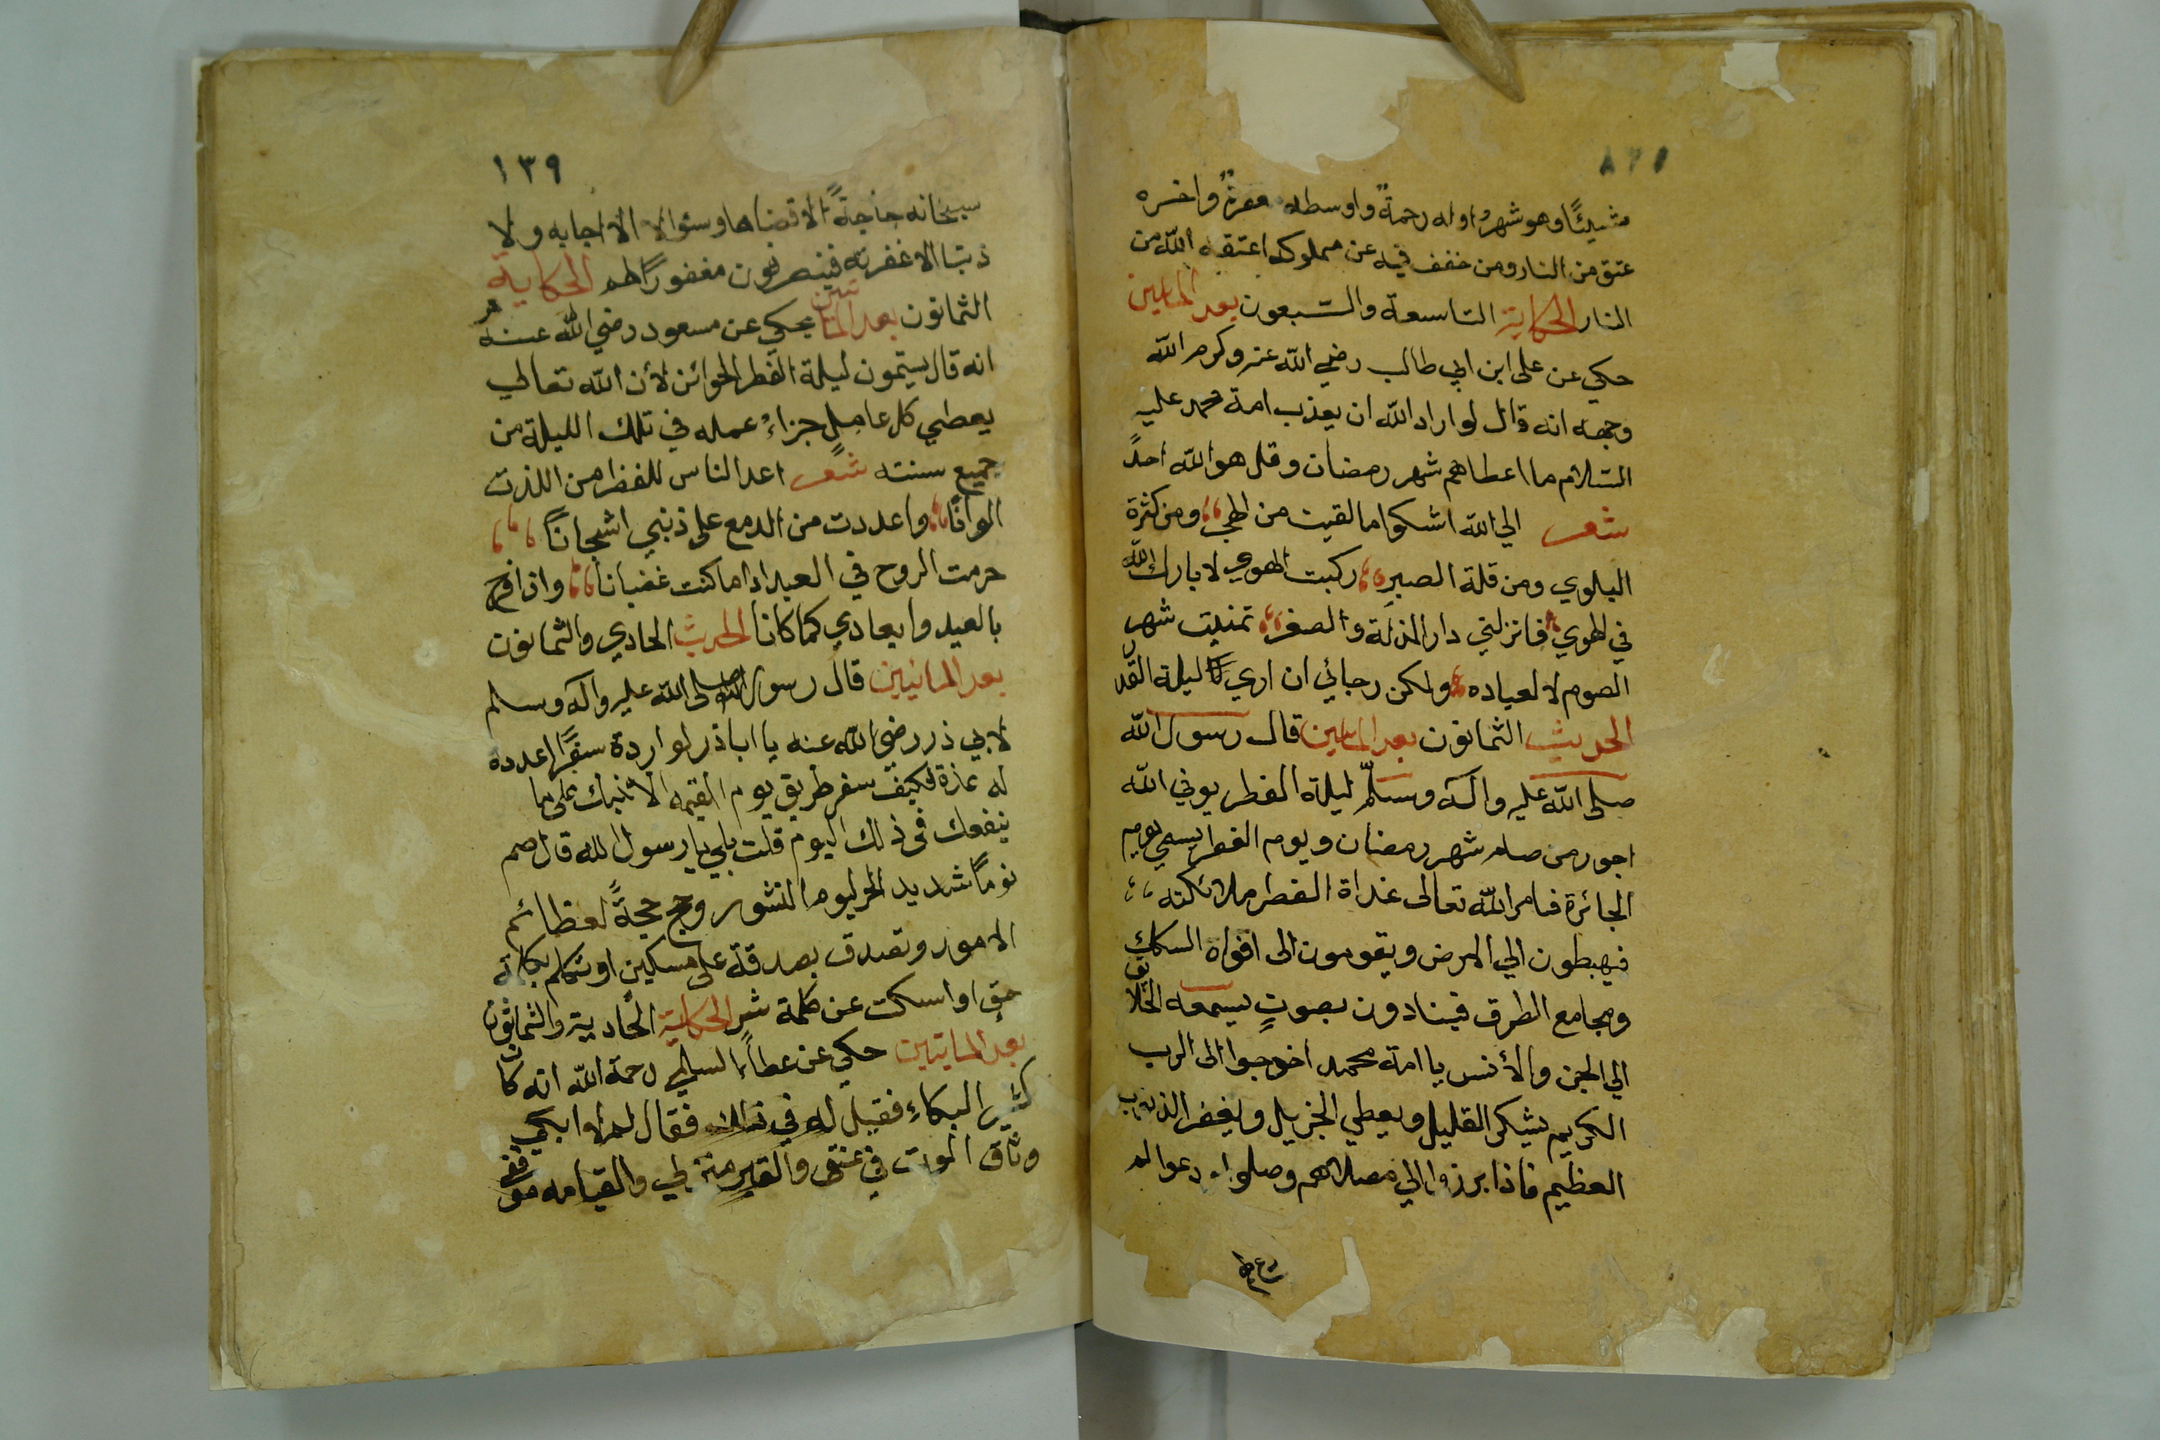 شيئًا وهو شهرٌ اوله رحمةٌ واوسطه مغفرةٌ واخره
عتق من النار ومن خفف فيه عن مملوكه اعتقه الله من
النار الحكاية التاسعة والسبعون بعد الماتين
حكي عن على ابن ابي طالب رضي الله عنه وكرم الله
وجهه انه قال لو اراد الله ان يعذب امة محمد عليه
السلام ما اعطاهم شهر رمضان وقل هو الله احدً
شعر الي الله اشكوا ما لقيت من الهجر ومن كثرة
البلوي ومن قلة الصبرِ ركبت الهوي لا بارك الله
في الهوي فانزلني دار المذلة والصغر تمنيت شهر
الصوم لا لعباده ولكن رجائي ان اري ليلة القدر
الحديث الثمانون بعد الماتين قال رسول الله
صلى الله عليه واله وسلّم ليلة الفطر يوفي الله
اجور من صام شهر رمضان ويوم الفطر يسمي يوم
الجائزة فيامر الله تعالى غداة الفطر ملائكته
فيهبطون الي الارض ويقومون الى افواه السكك
ومجامع الطرق فينادون بصوتٍ يسمعه الخلائق
الي الجن والأنس يا امة محمد اخرجوا الى الرب
الكريم يشكر القليل ويعطي الجزيل ويغفر الذنب
العظيم فاذا برزوا الي مصلاهم وصلوا ودعوا لم
١٣٩
سبحانه حاجةً الا قضاها وسئوالا الا اجابه ولا
ذنبا الا غفرته فينصرفون مغفورًا لهم الحكاية
الثمانون بعد الماتين يحكي عن مسعود رضي الله عنه
انه قال يسمون ليلة الفطر الجوائز لأن الله تعالي
يعطي كل عاملٍ جزاءُ عمله في تلك الليلة من
جميع سنته شعر اعد الناس للفطر من اللذت
الوانًا واعددت من الدمع على ذنبي اشجانًا
حرمت الروح في العيد اذا ما كنت غضبانا واذا فرح
بالعيد وابعادي كما كانا الحديث الحادي والثمانون
بعد الماتيين قال رسول الله صلى الله عليه واله وسلم
لابي ذر رضي الله عنه يا اباذر لو اردة سفرًا اعددة
له عدة فكيف سفر طريق يوم القيمه الا انبئك على ما
ينفعك فى ذلك اليوم قلت بلي يا رسول لله قال صم
يومًا شديد الحر ليوم النشور وحج حجةً لعظائم
الامور وتصدق بصدقة على مسكين او تكلم بكلمة
حقٍ او اسكت عن كلمة شرٍ الحكاية الحادية والثمانون
بعد الماتيين حكي عن عطاءً السلمي رحمة الله انه كان
كثير البكاء فقيل له في ذلك فقال لم لا ابكي
وثاق الموت في عنقي والقبر منزلي والقيامه موقفي